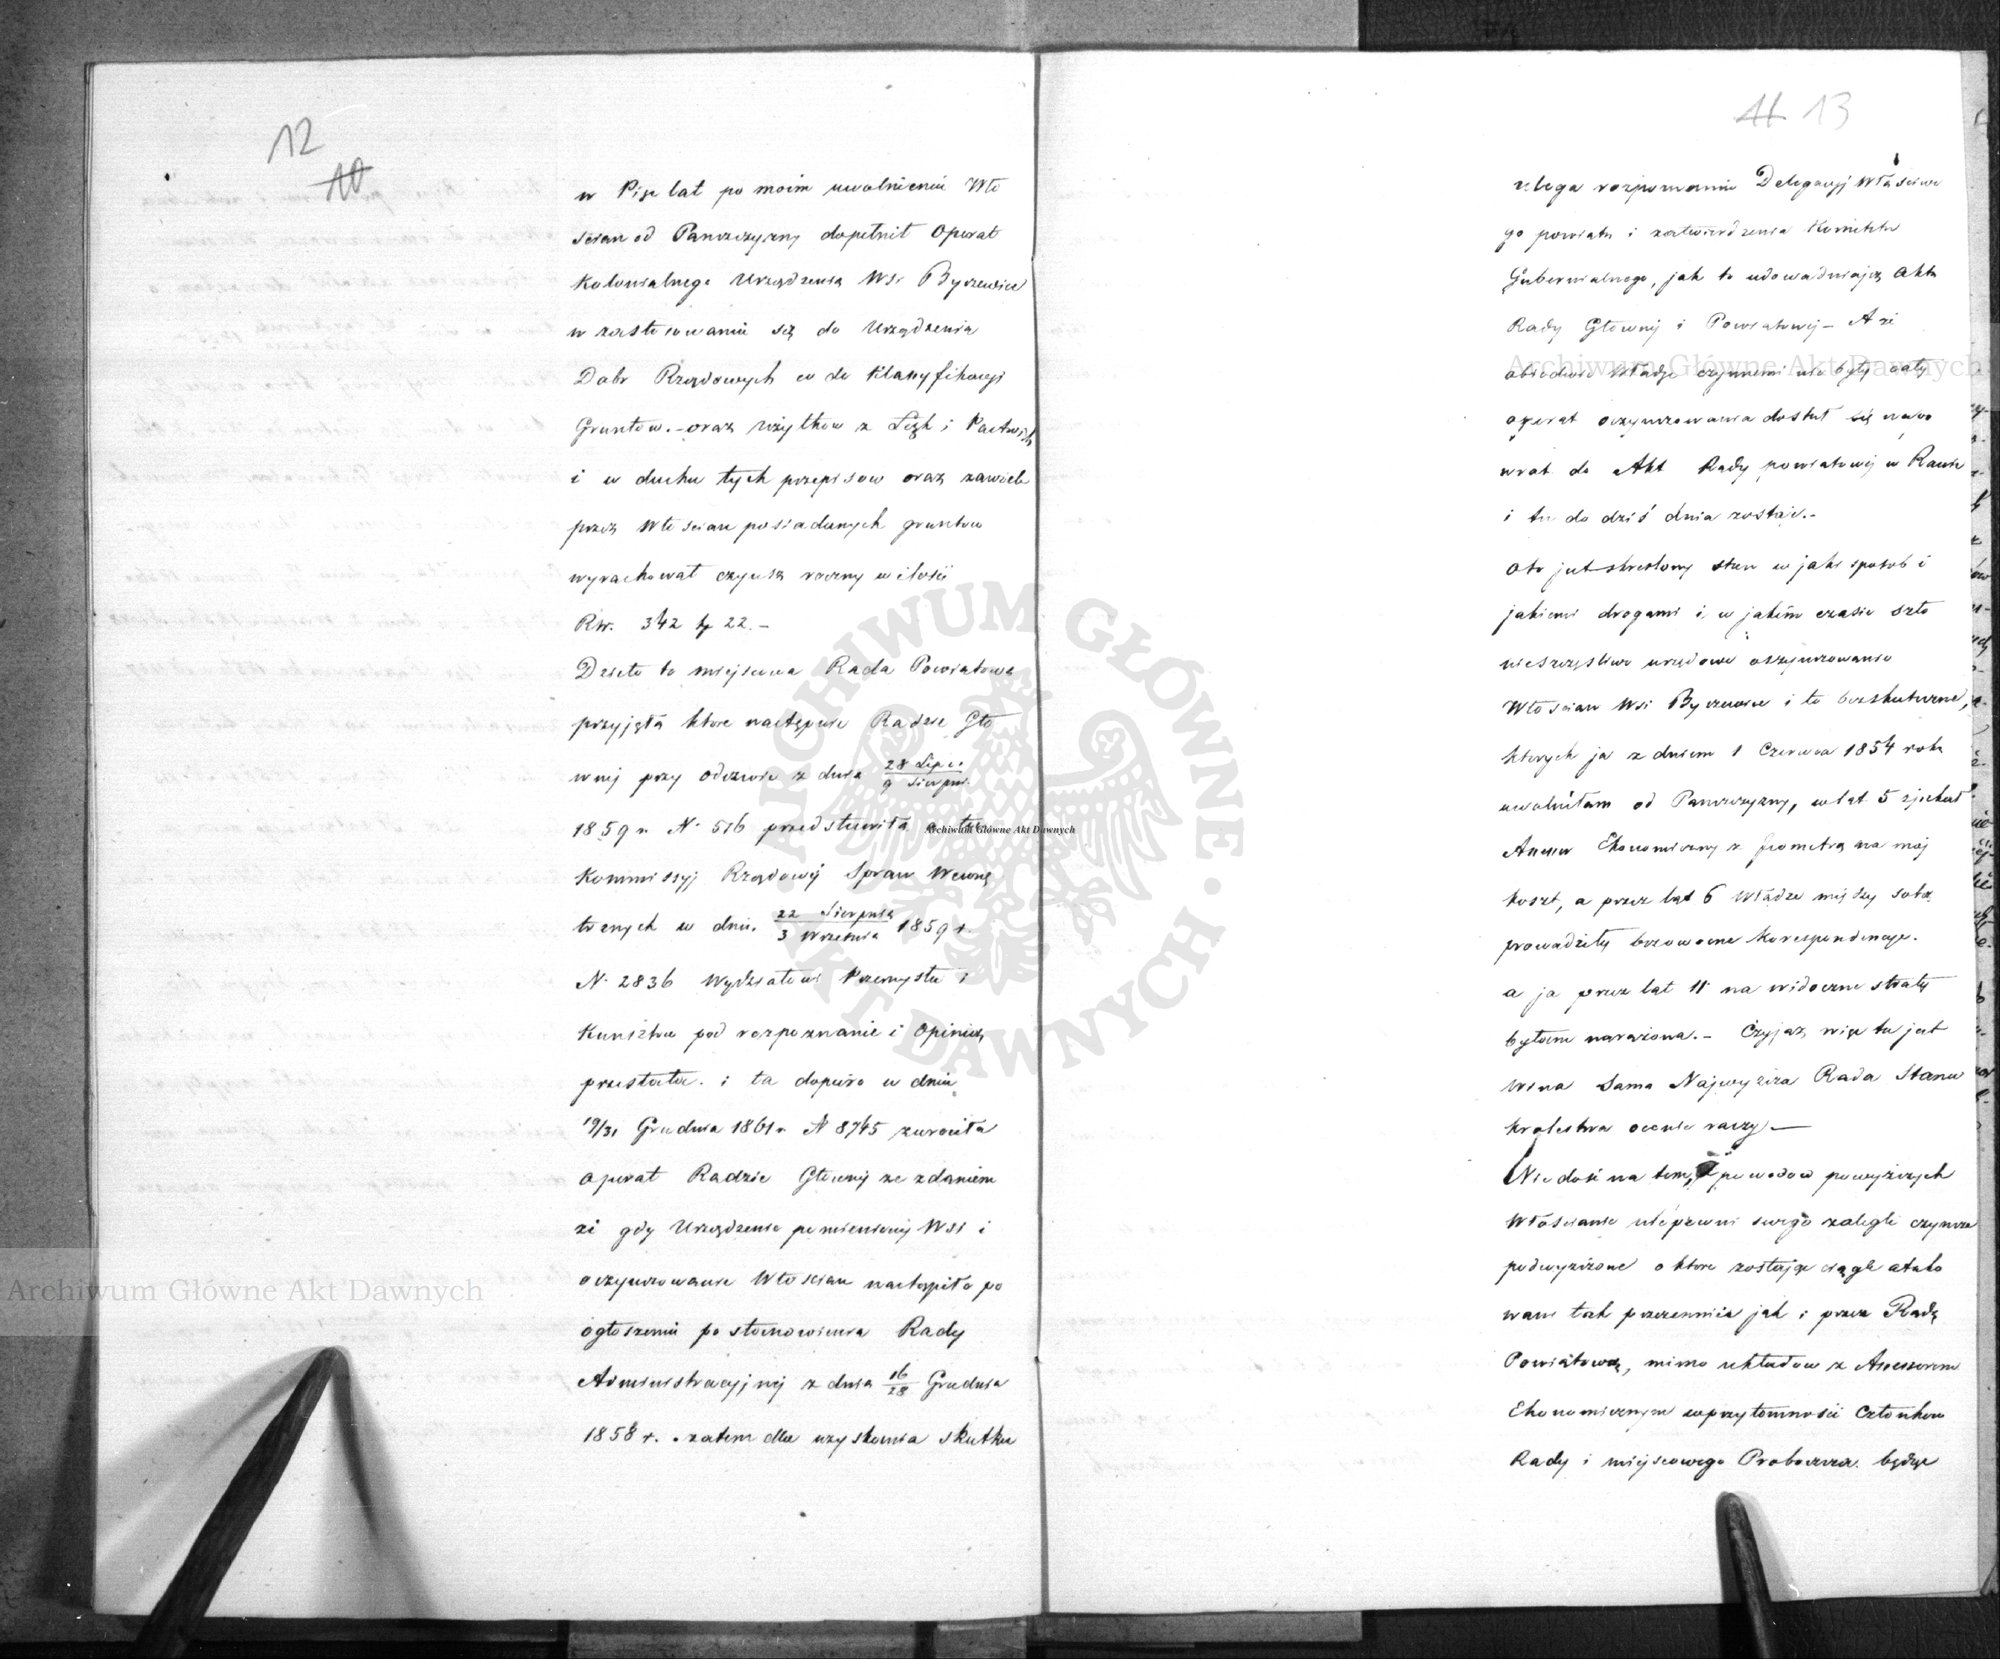 12
10
w Pięc lat po moim uwolnieniu Wło
scian od Panszczyzny dopełnił Operat
Kolonialnego Urządzenia Wsi Byszewice
w zastosowaniu się do Urządzenia
Dobr Rządowych co do Klassyfikacyi
Gruntow. - oraz użytkow z Łąk i Pastwisk
i w duchu tych przepisow oraz zawiele
przez Włoscian posiadanych gruntow
wyrachował czynsz roczny w ilosci
Rsr. 342 k 22. -
Dzieło to miejscowa Rada Powiatowa
przyjęła ktore następnie Radzie Gło
wnej przy odezwie z dnia 28 Lipca / 9 Sierpni.
1859 r. N. 516 przedstawiła a ta
Kommissyi Rządowej Spraw Wewnę
trznych w dniu 22 Sierpnia / 3 Wrzesnia 1859 r.
N. 2836 Wydziałowi Przemysłu i
Kunsztow pod rozpoznanie i Opinią
przesłała. i ta dopiero w dniu
19/31 Grudnia 1861 r. N 8745 zwrociła
Operat Radzie Głownej ze zdaniem
że gdy Urządzenie pomienionej Wsi i
oczynszowanie Włoscian nastąpiło po
ogłoszeniu postanowienia Rady
Administracyjnej z dnia 16/28 Grudnia
1858 r. zatem dla uzyskania skutku
11 13
ulega rozpoznaniu Delegacyj Własciwe
go powiatu i zatwierdzenia Komitetu
Gubernialnego, jak to udowadniają Akta
Rady Głownej i Powiatowej - A że
obiedwie Władze czynnemi nie były cały
operat oczynszowania dostał się napo
wrot do Akt Rady powiatowej w Rawie
i tu do dziś dnia zostaje. -
Oto jest skreslony stan w jaki sposob i
jakiemi drogami i w jakim czasie szło
nieszczęsliwe urzędowe oczynszowanie
Włoscian Wsi Byszewice i to bezskuteczne,
ktorych ja z dniem 1 Czerwca 1854 roku
uwolniłam od Panszczyzny, w lat 5 zjechał
Assessor Ekonomiczny z Geometrą na moj
koszt, a przez lat 6 Władze między sobą
prowadziły bezowocne Korespondencye.
a ja przez lat 11 na widoczne straty
byłam narażona. - Czyjaż więc tu jest
wina sama Najwyższa Rada Stanu
Krolestwa ocenic raczy -
Nie dość na tem, z powodow powyższych
Włoscianie niepewni swego zalegli czynsze
podwyższone o ktore zostaję ciągle atako
wani tak przezemnie jak i przez Radę
Powiatową, mimo układow z Assessorem
Ekonomicznym w przytomności Członkow
Rady i miejscowego Proboszcza. będąc
Archiwum Główne Akt Dawnych
Archiwum Główne Akt Dawnych
Archiwum Główne Akt Dawnych
ARCHIWUM GŁÓWNE AKT DAWNYCH